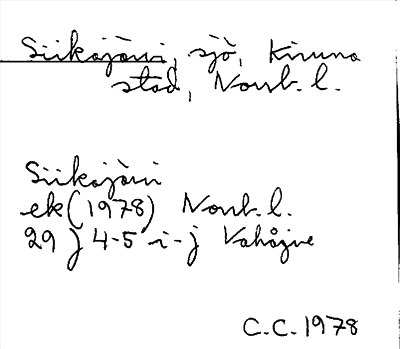 Siikajärvi, sjö, Kiruna
stad, Norrb. l.
Siikajärvi
ek (1978) Norrb. l.
29 J 4-5 i-j
C.C. 1978